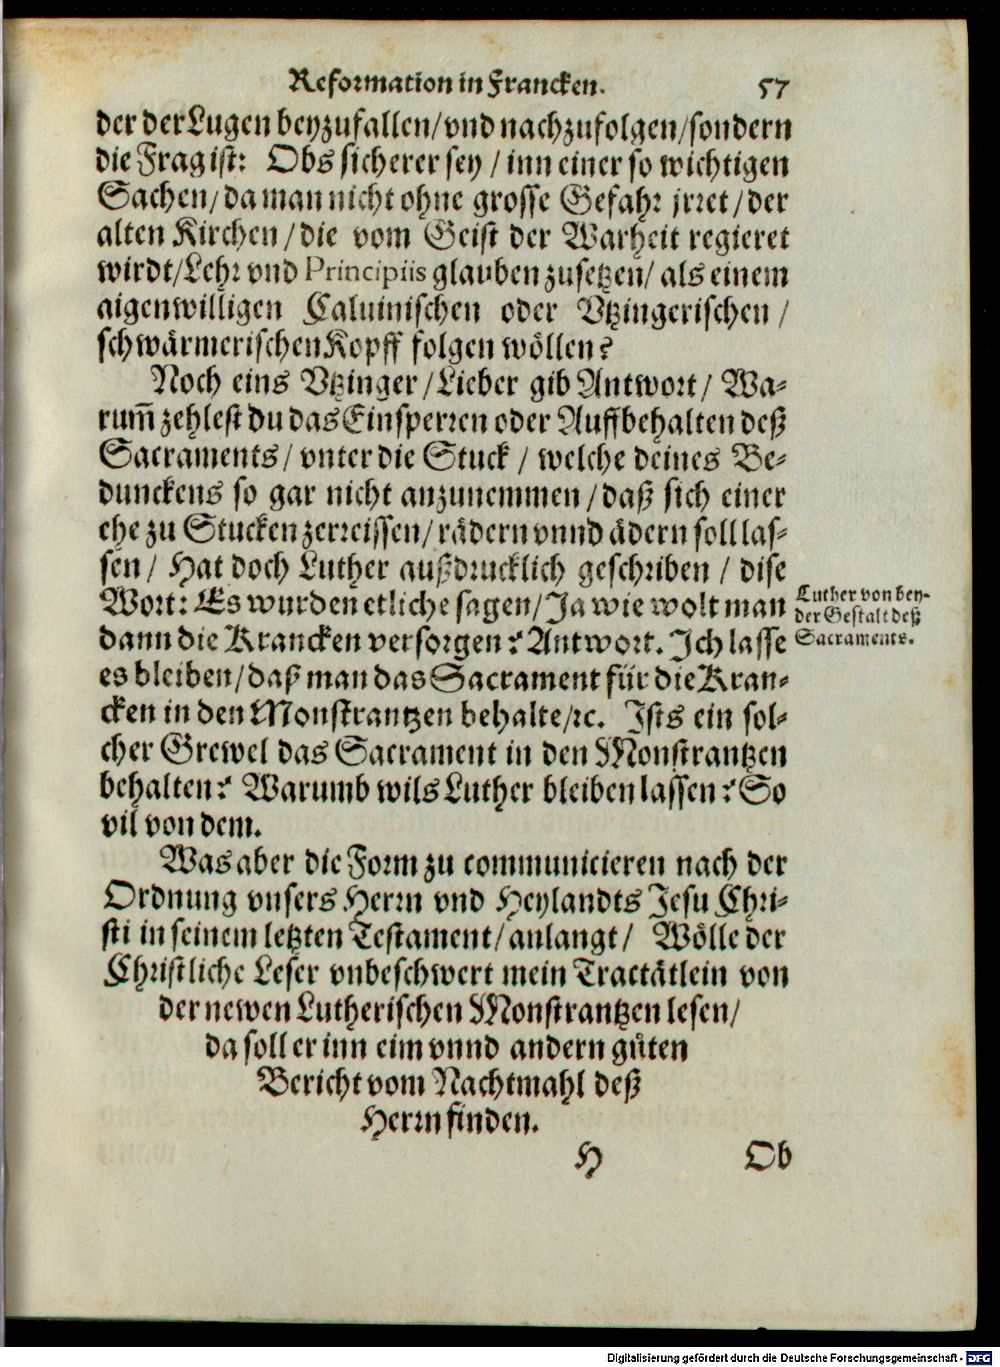 Reformation in Francken. 57
der der Lugen beyzufallen/vnd nachzufolgen/sondern
die Frag ist: Obs sicherer sey / inn einer so wichtigen
Sachen/da man nicht ohne grosse Gefahr jrret/der
alten Kirchen/die vom Geist der Warheit regieret
wirdt/Lehr vnd Principiis glauben zusetzen/ als einem
aigenwilligen Caluinischen oder Vtzingerischen /
schwärmerischen Kopff folgen wöllen?
Noch eins Vtzinger/Lieber gib Antwort/ Wa-
rum̃ zehlest du das Einsperren oder Auffbehalten deß
Sacraments/ vnter die Stuck / welche deines Be-
dunckens so gar nicht anzunemmen/daß sich einer
ehe zu Stucken zerreissen/rädern vnnd ädern soll las-
sen/ Hat doch Luther außdrucklich geschriben / dise
Wort: Es wurden etliche sagen/Ja wie wolt man
dann die Krancken versorgen? Antwort. Ich lasse
es bleiben/daß man das Sacrament für die Kran-
cken in den Monstrantzen behalte/ꝛc. Ists ein sol-
cher Grewel das Sacrament in den Monstrantzen
behalten? Warumb wils Luther bleiben lassen? So
vil von dem.
Luther von bey-
der Gestalt deß
Sacraments.
Was aber die Form zu communicieren nach der
Ordnung vnsers Herrn vnd Heylandts Jesu Chri-
sti in seinem letzten Testament/anlangt/ Wölle der
Christliche Leser vnbeschwert mein Tractätlein von
der newen Lutherischen Monstrantzen lesen/
da soll er inn eim vnnd andern gůten
Bericht vom Nachtmahl deß
Herrn finden.
H Ob
Digitalisierung gefördert durch die Deutsche Forschungsgemeinschaft - DFG